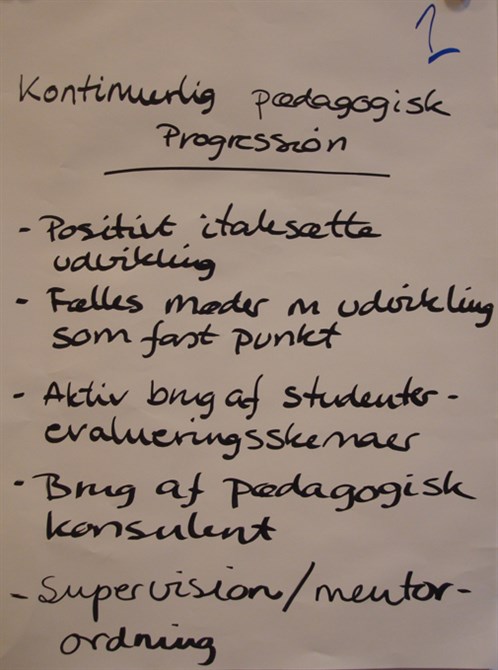 1
Kontinuerlig pædagogisk
Progression
- Positivt italesætte
udvikling
- Fælles møder m udvikling
som fast punkt
- Aktiv brug af studenter-
evalueringsskemaer
- Brug af pædagogisk
konsulent
- Supervision/mentor-
ordning